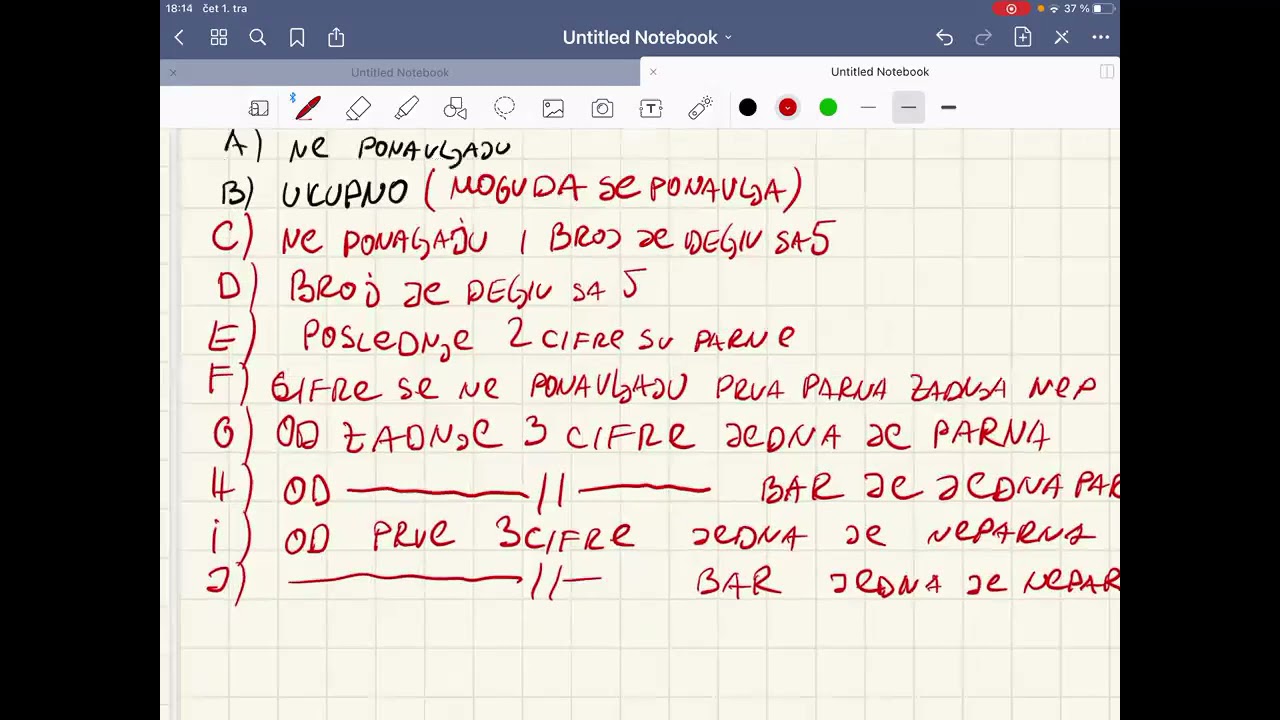 18:14 čet 1. tra 37 %
Untitled Notebook
Untitled Notebook Untitled Notebook
A) NE PONAVLJAJU
B) UKUPNO (MOGU DA SE PONAVLJA)
C) NE PONALJAJU I BROJ JE DELJIV SA 5
D) BROJ JE DELJIV SA 5
E) POSLEDNJE 2 CIFRE SU PARNE
F) CIFRE SE NE PONAVLJAJU PRVA PARNA ZADNJA NEP
G) OD ZADNJE 3 CIFRE JEDNA JE PARNA
H) OD —//— BAR JE JEDNA PAR
i) OD PRVE 3 CIFRE JEDNA JE NEPARNA
J) —//— BAR JEDNA JE NEPAR